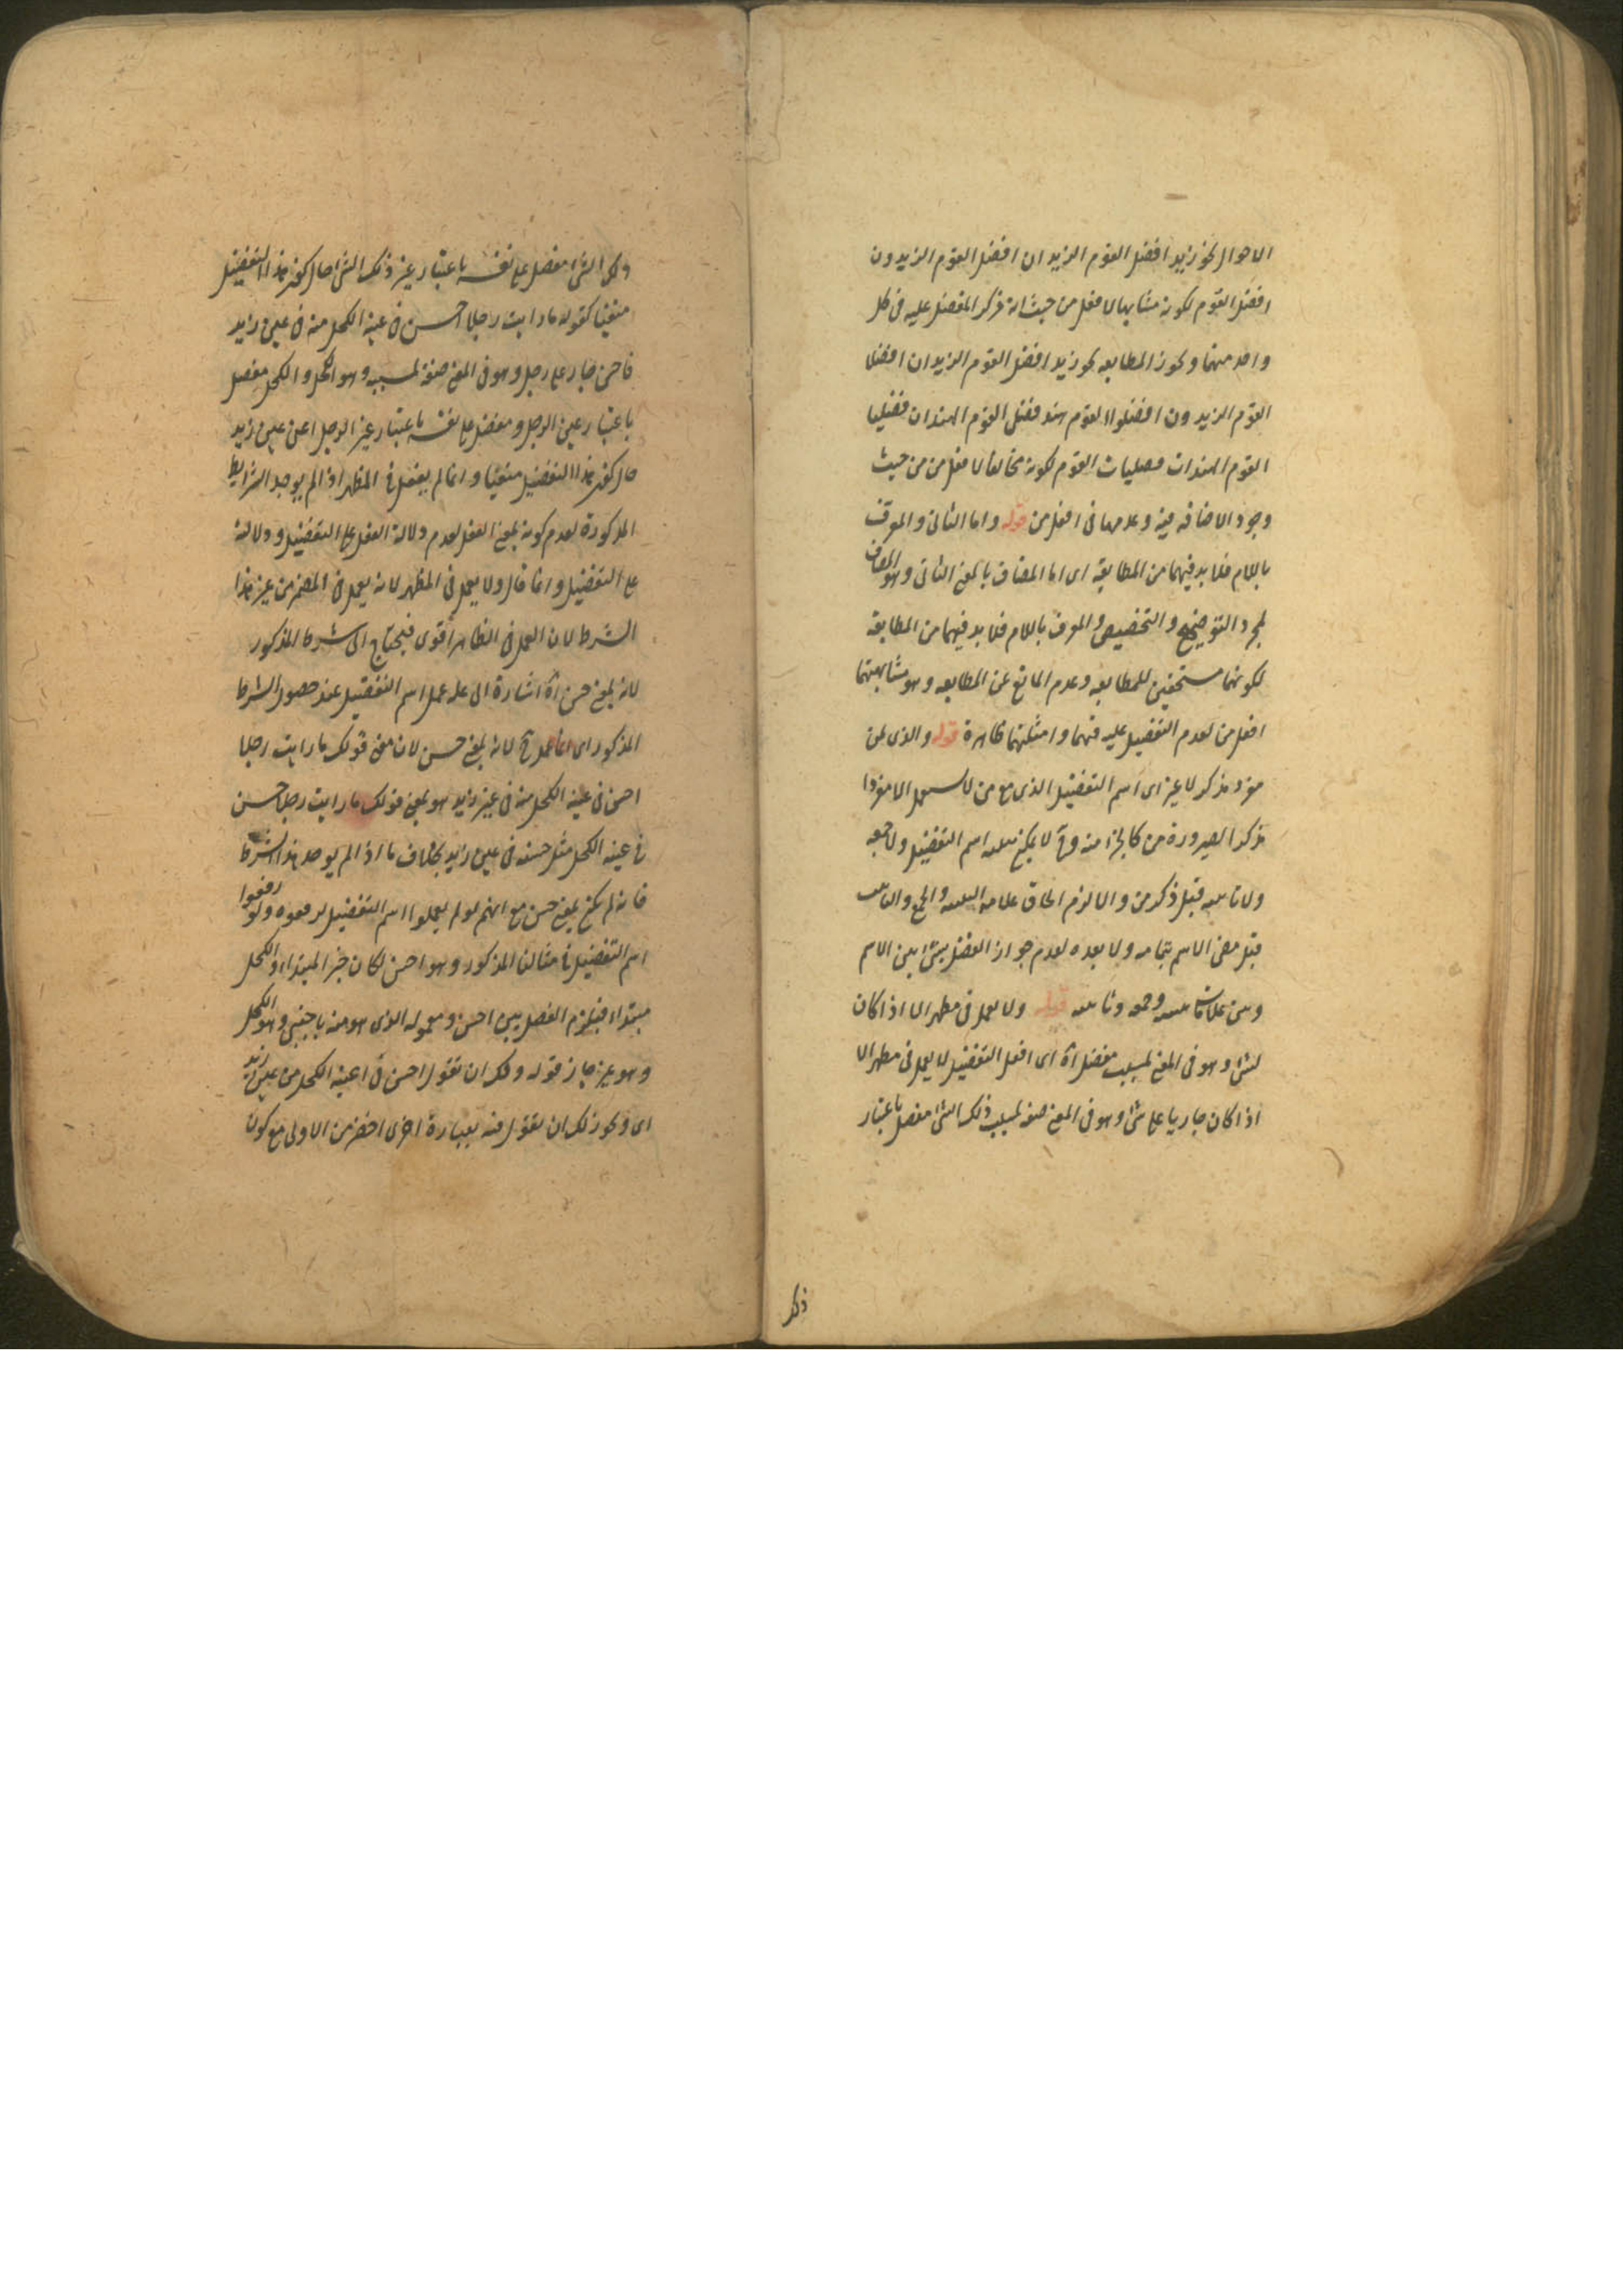 الاحوال نحو زيد افضل القوم الزيدان افضل القوم الزيدون
افضل القوم لكونه مشابها لافعل من حيث انه ذكر المفضل عليه في كل
واحد منهما ويجوز المطابقه نحو زيد افضل القوم الزيدان افضلا
القوم الزيدون افضلوا القوم هند فضلى القوم الهندان فضليا
القوم الهندات فضليات القوم لكونه مخالفا لافعل من من حيث
وجود الاضافه فيه وعدمها في افعل من قوله واما الثاني والمعرف
باللام فلا بد فيهما من المطابقة اى اما المضاف بالمعنى الثاني وهو المضاف
لمجرد التوضيح والتخصيص والمعرف باللام فلا بد فيهما من المطابقة
لكونهما مستحقين للمطابقه وعدم المانع عن المطابقه وهو مشابهتهما
افعل من لعدم التفضيل عليه فيهما وامثلتهما ظاهرة قوله والذى بمن
مفرد مذكر لا غير اى اسم التفضيل الذى مع من لا يستعمل الا مفردا
مذكرا لصيرورة من كالجزء منه وح لا يمكن تثنيه اسم التفضيل ولا جمعه
ولا تانيثه قبل ذكر من والا لزم الحاق علامه التثنيه والجمع والتانيث
قبل مضى الاسم بتمامه ولا بعده لعدم جواز الفصل بشئ بين الاسم
وبين علامات تثنيته وجمعه وتانيثه قوله ولا يعمل في مظهر الا اذا كان
لشئ وهو في المعنى لمسبب مفضل آه اى افعل التفضيل لا يعمل في مظهر الا
اذا كان جاريا على شئ وهو في المعنى صفه لمسبب ذلك الشئ مفضل باعتبار
ذلك
ذلك الشئ مفضل على نفسه باعتبار غير ذلك الشئ حال كون هذا التفضيل
منفيا كقوله ما رايت رجلا احسن في عينه الكحل منه في عين زيد
فاحسن جار على رجل وهو في المعنى صفة لمسببه وهو الكحل والكحل مفضل
باعتبار عين الرجل ومفضل على نفسه باعتبار غير الرجل اعنى عين زيد
حال كون هذا التفضيل منفيا وانما لم يعمل في المظهر اذا لم يوجد الشرايط
المذكورة لعدم كونه بمعنى الفعل لعدم دلالة الفعل على التفضيل ودلالته
على التفضيل وانما قال ولا يعمل في المظهر لانه يعمل في المضمر من غير هذا
الشرط لان العمل في الظاهر اقوى فيحتاج الى شرط المذكور
لانه بمعنى حسن آه اشارة الى عله عمل اسم التفضيل عند حصول الشرط
المذكور اى انما عمل ح لانه بمعنى حسن لان معنى قولك ما رايت رجلا
احسن في عينه الكحل منه في عين زيد هو بمعنى قولك ما رايت رجلا حسن
في عينه الكحل مثل حسنه في عين زيد بخلاف ما اذا لم يوجد هذا الشرط
فانه لم يكن بمعنى حسن مع انهم لو لم يعملوا اسم التفضيل لرفعوه ولو رفعوا
اسم التفضيل في مثالنا المذكور وهو احسن لكان خبر المبتداء والكحل
مبتداء فيلزم الفصل بين احسن ومعموله الذى هو منه باجنبى وهو الكحل
وهو غير جايز قوله ولك ان تقول احسن في عينه الكحل من عين زيد
اى ويجوز لك ان تقول فيه بعبارة اخرى اخصر من الاولى مع كون